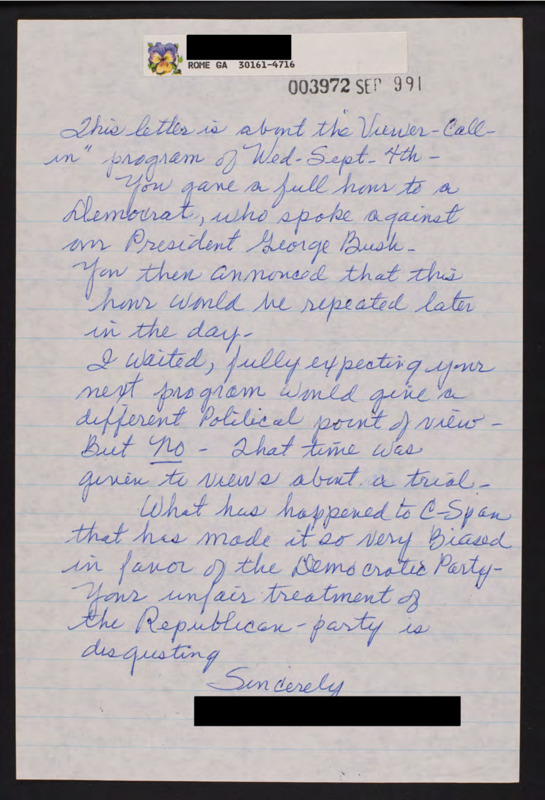 ROME GA 30161-4716
003972 SEP 991
This letter is about the "Viewer-Call-
in" program of Wed-Sept-4th-
You gave a full hour to a
Democrat, who spoke against
our President George Bush-
You then annonced that this
hour would be repeated later
in the day-
I waited, fully expecting your
next program would give a
different Political point of view-
But No - That time was
given to views about a trial-
What has happened to C-Span
that has made it so very Biased
in favor of the Democratic Party-
Your unfair treatment of
the Republican-party is
disgusting
Sincerely